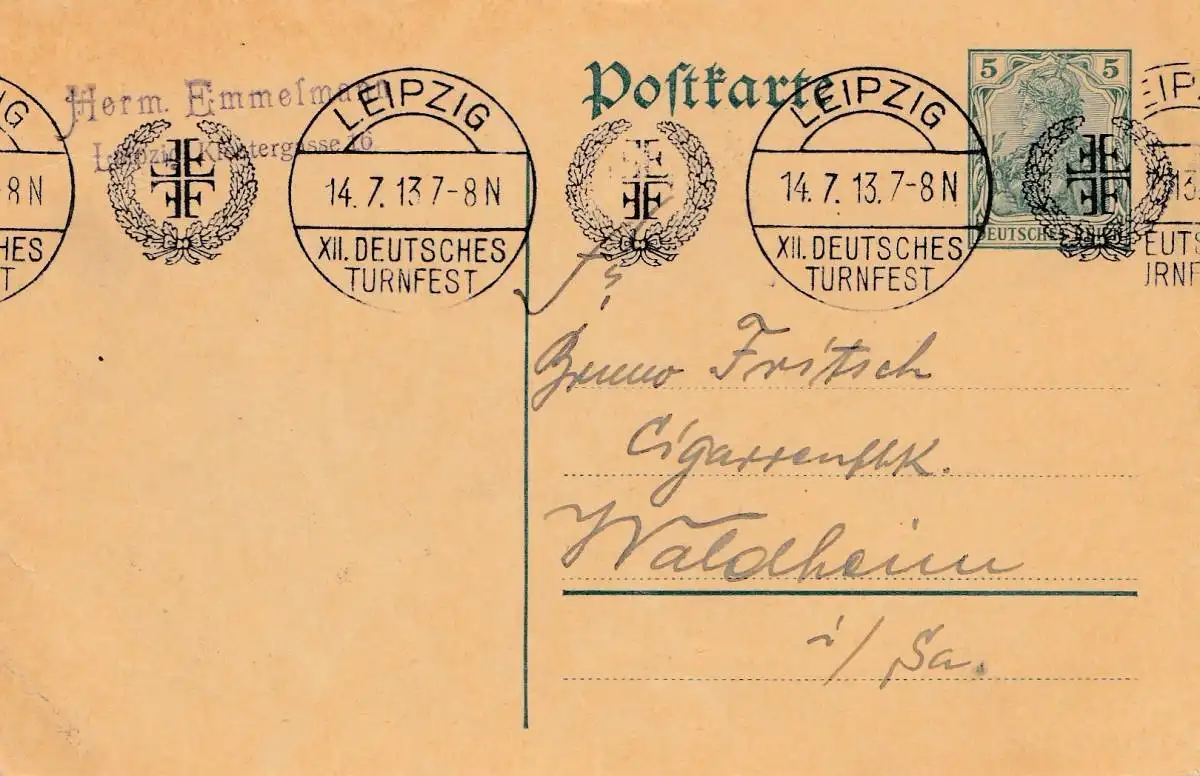 Herm. Emmelmann
Leipzig, Klostergasse 16
Poſtkarte
5 5
DEUTSCHES REICH
G
-8 N
HES
T
LEIPZIG
14. 7. 13. 7-8 N
XII. DEUTSCHES
TURNFEST
LEIPZIG
14. 7. 13. 7-8 N
XII. DEUTSCHES
TURNFEST
EIP
13
EUTS
URNF
Bruno Fritsch
Cigarrenfbk.
Waldheim
i/Sa.